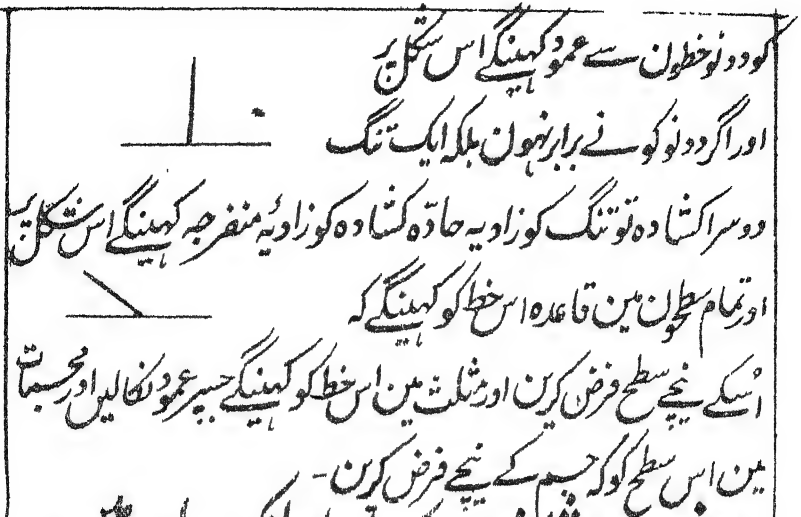 کو دونو خطون سے عمود کہینگے اس شکل پر
اور اگر دونو کونے برابر نہون بلکہ ایک تنگ
دوسرا کشادہ تو تنگ کو زاویہ حادّہ کشادہ کو زاویۂ منفرجہ کہینگے اس شکل پر
اور تمام سطحون مین قاعدہ اس خط کو کہینگے کہ
اُسکے نیچے سطح فرض کرین اور مثلث مین اس خط کو کہینگے جسپر عمود نکالیں اور مجسمات
مین اس سطح کو کہ جسم کے نیچے فرض کرین -